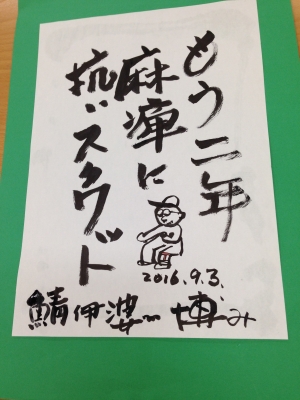 もう二年
麻痺に
抗いスクワド
2016.9.3.
鯖伊婆〜 博み